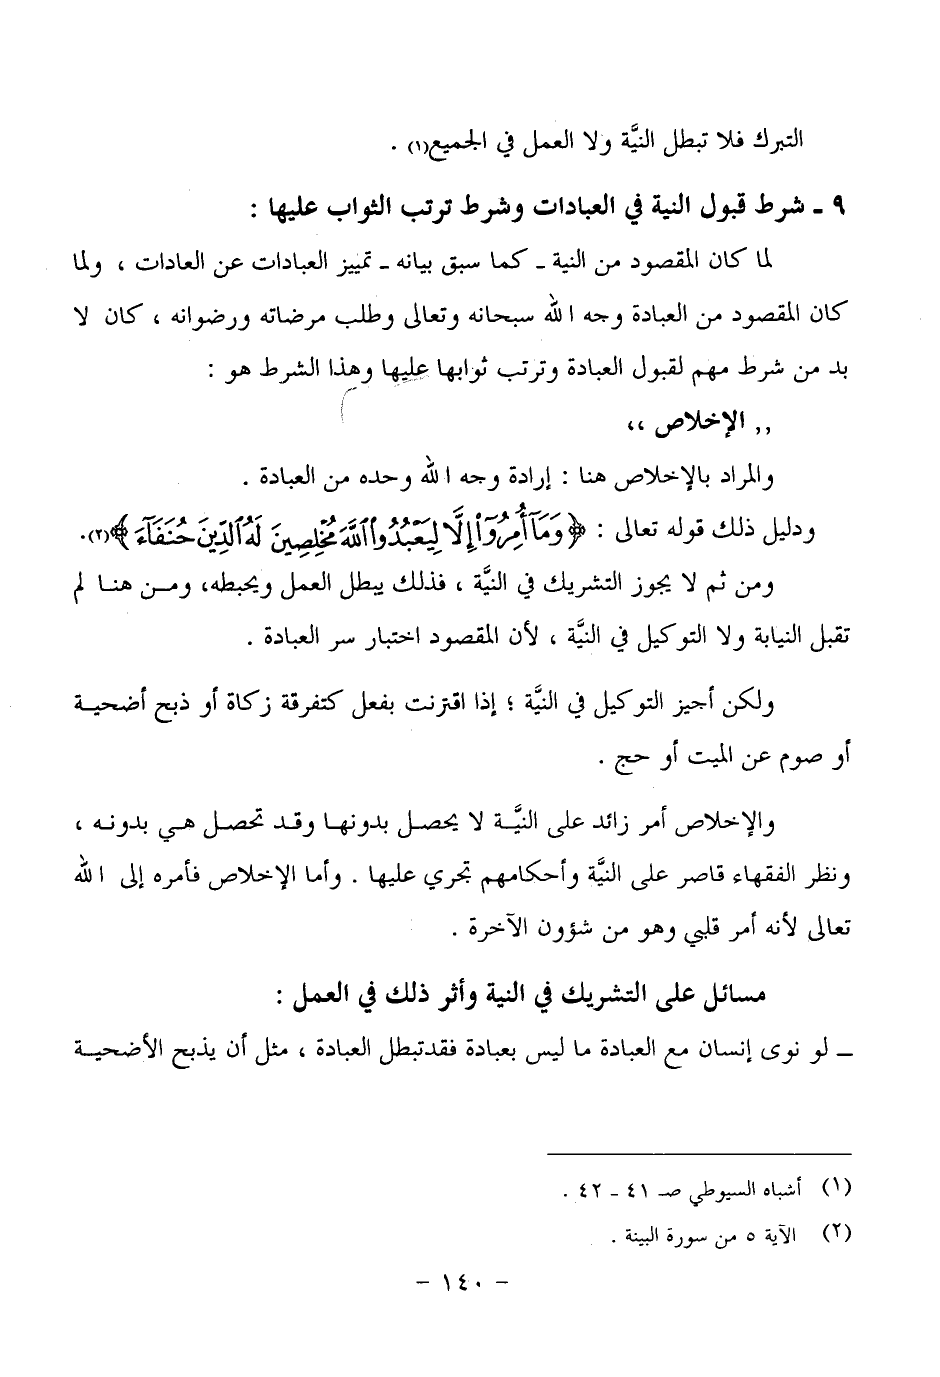 التبرك فلا تبطل النيَّة ولا العمل في الجميع(١) .
٩ ـ شرط قبول النية في العبادات وشرط ترتب الثواب عليها :
لما كان المقصود من النية ـ كما سبق بيانه ـ تمييز العبادات عن العادات ، ولما
كان المقصود من العبادة وجه الله سبحانه وتعالى وطلب مرضاته ورضوانه ، كان لا
بد من شرط مهم لقبول العبادة وترتب ثوابها عليها وهذا الشرط هو :
,, الإخلاص ،،
والمراد بالإخلاص هنا : إرادة وجه الله وحده من العبادة .
ودليل ذلك قوله تعالى : ﴿وَمَآ أُمِرُوٓا۟ إِلَّا لِيَعْبُدُوا۟ ٱللَّهَ مُخْلِصِينَ لَهُ ٱلدِّينَ حُنَفَآءَ﴾(٢).
ومن ثم لا يجوز التشريك في النيَّة ، فذلك يبطل العمل ويحبطه، ومـن هنـا لم
تقبل النيابة ولا التوكيل في النيَّة ، لأن المقصود اختبار سر العبادة .
ولكن أجيز التوكيل في النيَّة ؛ إذا اقترنت بفعل كتفرقة زكاة أو ذبح أضحيـة
أو صوم عن الميت أو حج .
والإخلاص أمر زائد على النيَّـة لا يحصـل بدونهـا وقـد تحصـل هـي بدونـه ،
ونظر الفقهاء قاصر على النيَّة وأحكامهم تجري عليها . وأما الإخلاص فأمره إلى الله
تعالى لأنه أمر قلبي وهو من شؤون الآخرة .
مسائل على التشريك في النية وأثر ذلك في العمل :
ـ لو نوى إنسان مع العبادة ما ليس بعبادة فقدتبطل العبادة ، مثل أن يذبح الأضحيـة
(١) أشباه السيوطي صـ ٤١ ـ ٤٢ .
(٢) الآية ٥ من سورة البينة .
- ١٤٠ -